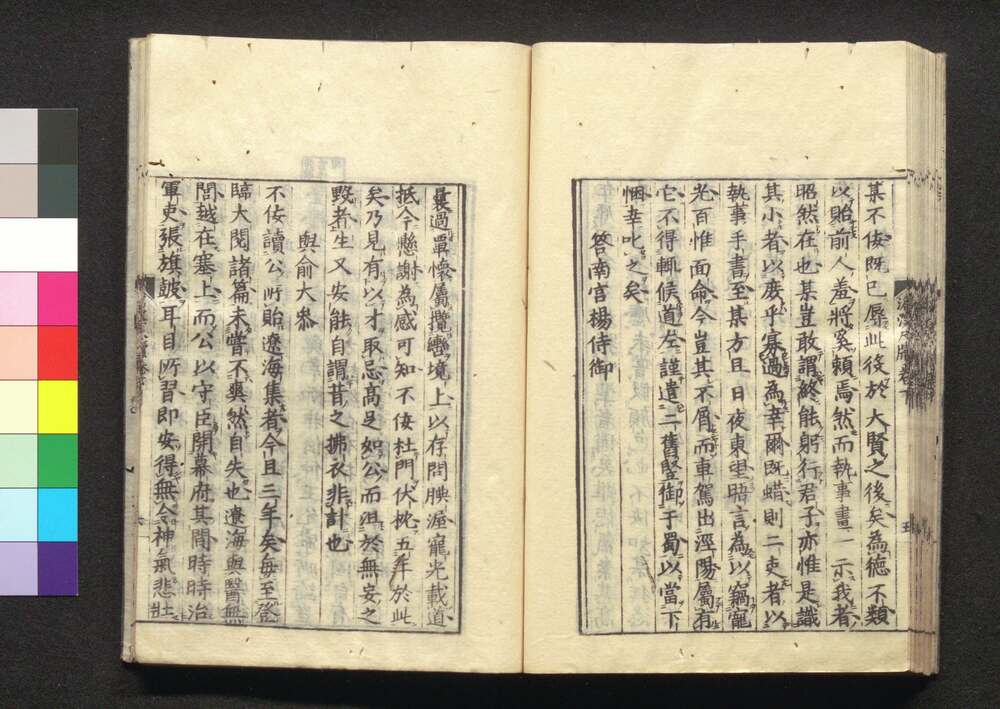 某不佞既已辱此役於大賢之後矣為徳不類
以貽前人羞將奚頼焉然而執事畫一示我者
昭然在也某豈敢謂終能躬行君子亦惟是識
其小者以庶乎寡過為幸爾既蜡則二吏者以
執事手書至某方且日夜東望晤言為以竊寵
光百惟面命今豈其不屑而車駕出涇陽屬有
它不得輒候道左謹遣二舊豎御于蜀以當下
悃幸叱之矣
答南宫楊侍御
曩過覃懷屬攬轡境上以存問腆渥寵光載道
抵今懸謝為感可知不佞杜門伏枕五年於此
矣乃見有以才取忌高足如公而沮於無妄之
毀者生又安能自謂昔之拂衣非計也
與俞大叅
不佞讀公所貽遼海集者今且三年矣毎至登
臨大閱諸篇未嘗不爽然自失也遼海與醫無
閭越在塞上而公以守臣開幕府其間時時治
軍吏張旗皷耳目所習即安得無令神氣悲壯